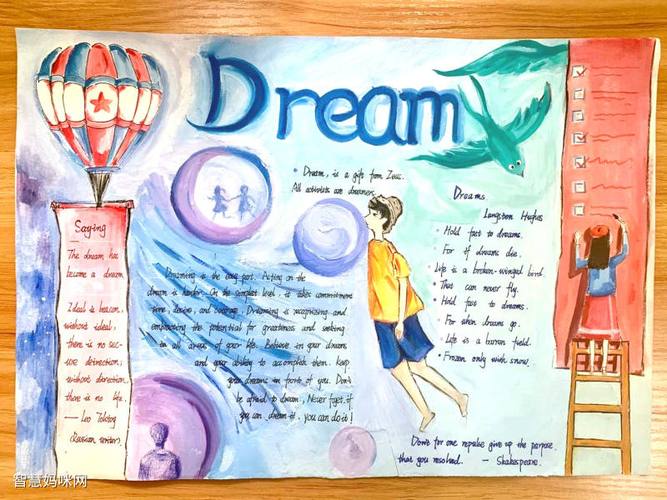 Dream
Dream, is a gift from Zeus.
All activists are dreamers.
Saying
The dream has
become a dream
Ideal is beacon,
without ideal,
there is no sec-
ure detirection;
without direction,
there is no life.
— Leo Tolstoy
(Russian writer).
Dreaming is the easy part. Acting on the
dream is harder. On the simplest level, it takes commitment
time, desire, and courage. Dreaming is recognizing and
empowering the potential for greatness and seeking
in all areas of your life. Believe in your dream
and your ability to accomplish them. Keep
your dreams in front of you. Don't
be afraid to dream, Never foget, if
you can dream it, you can do it!
Dreams
Langston Hughes
Hold fast to dreams.
For if dreams die.
Life is a broken-winged bird.
That can never fly.
Hold fast to dreams.
For when dreams go.
Life is a barren field.
Frozen only with snow.
Don't for one repulse give up the purpose
that you resolved. — Shakespeare.
智慧妈咪网